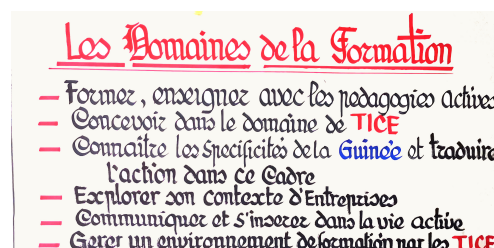 Les Domaines de la Formation
– Former, enseigner avec les pedagogies actives
– Concevoir dans le domaine de TICE
– Connaître les Specificités de la Guinée et traduire
l'action dans ce Cadre
– Explorer son contexte d'Entreprises
– Communiquer et s'inserer dans la vie active
– Gerer un environnement de formation par les TICE